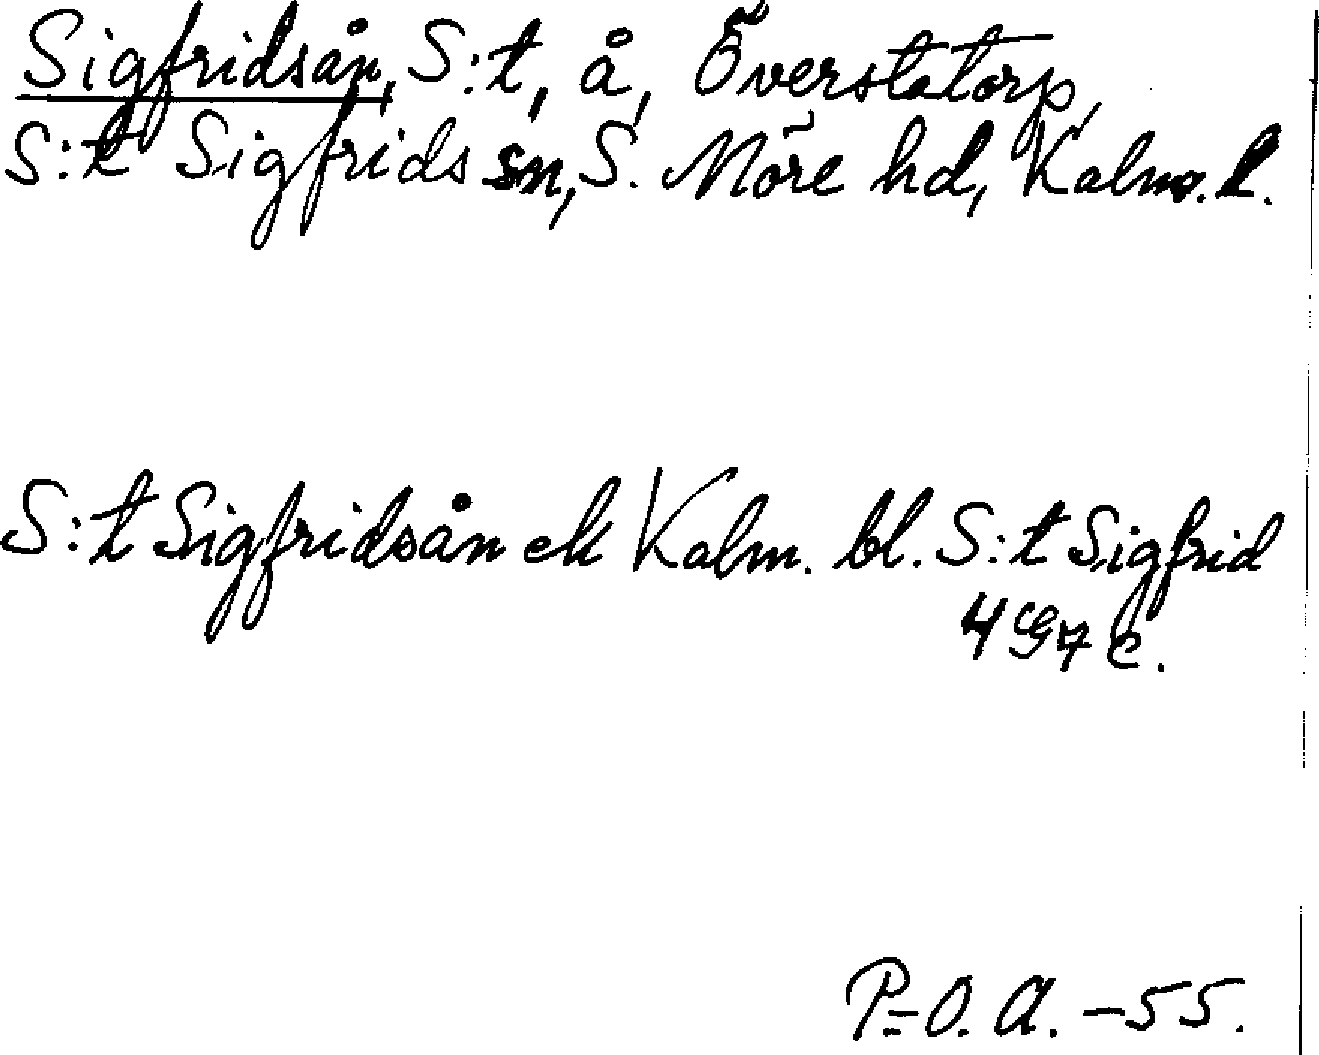 Sigfridsån, S:t, å, Överstatorp,
S:t Sigfrids sn, S. Möre hd, Kalm. l.
S:t Sigfridsån ek Kalm. bl. S:t Sigfrid
4 G7 c.
P-O. A. -55.